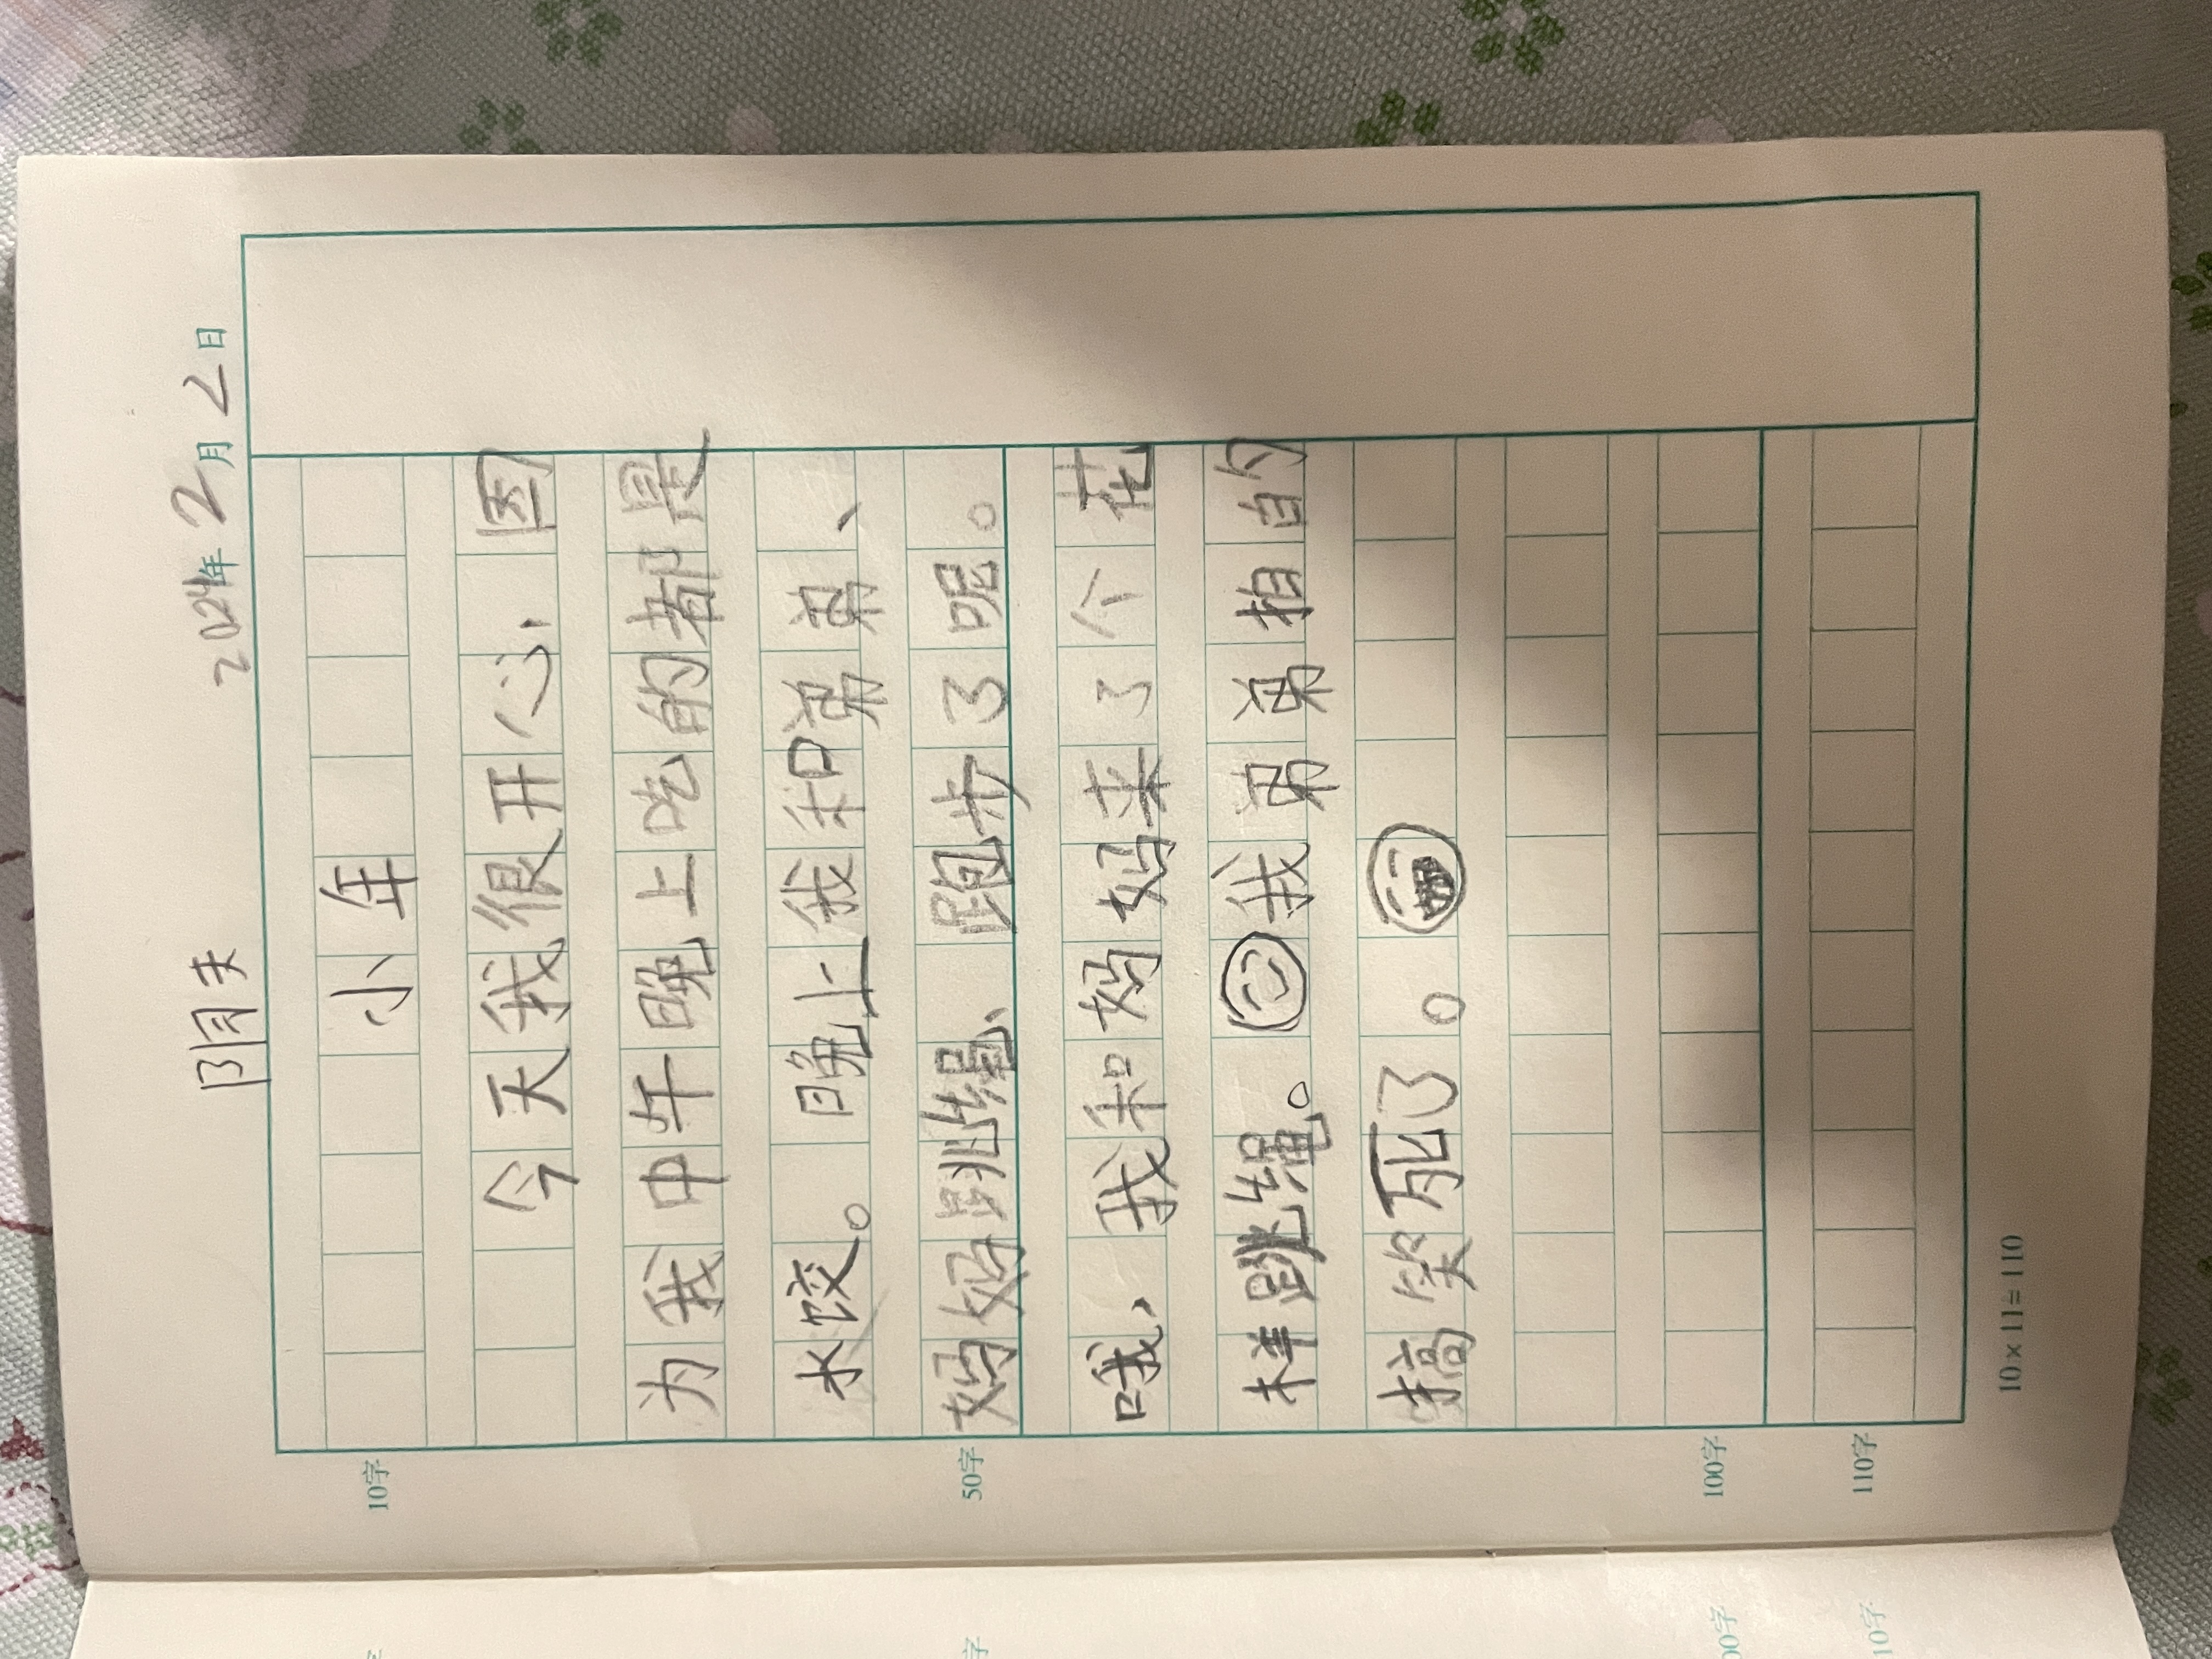 阴天 2024年2月2日
小年
今天我很开心,因
为我中午晚上吃的都是
水饺。晚上我和弟弟、
妈妈跳绳、跑步了呢。
哦,我和妈妈来了个花
样跳绳。我弟弟拍自的
搞笑死了。
10字
50字
100字
110字
10×11=110